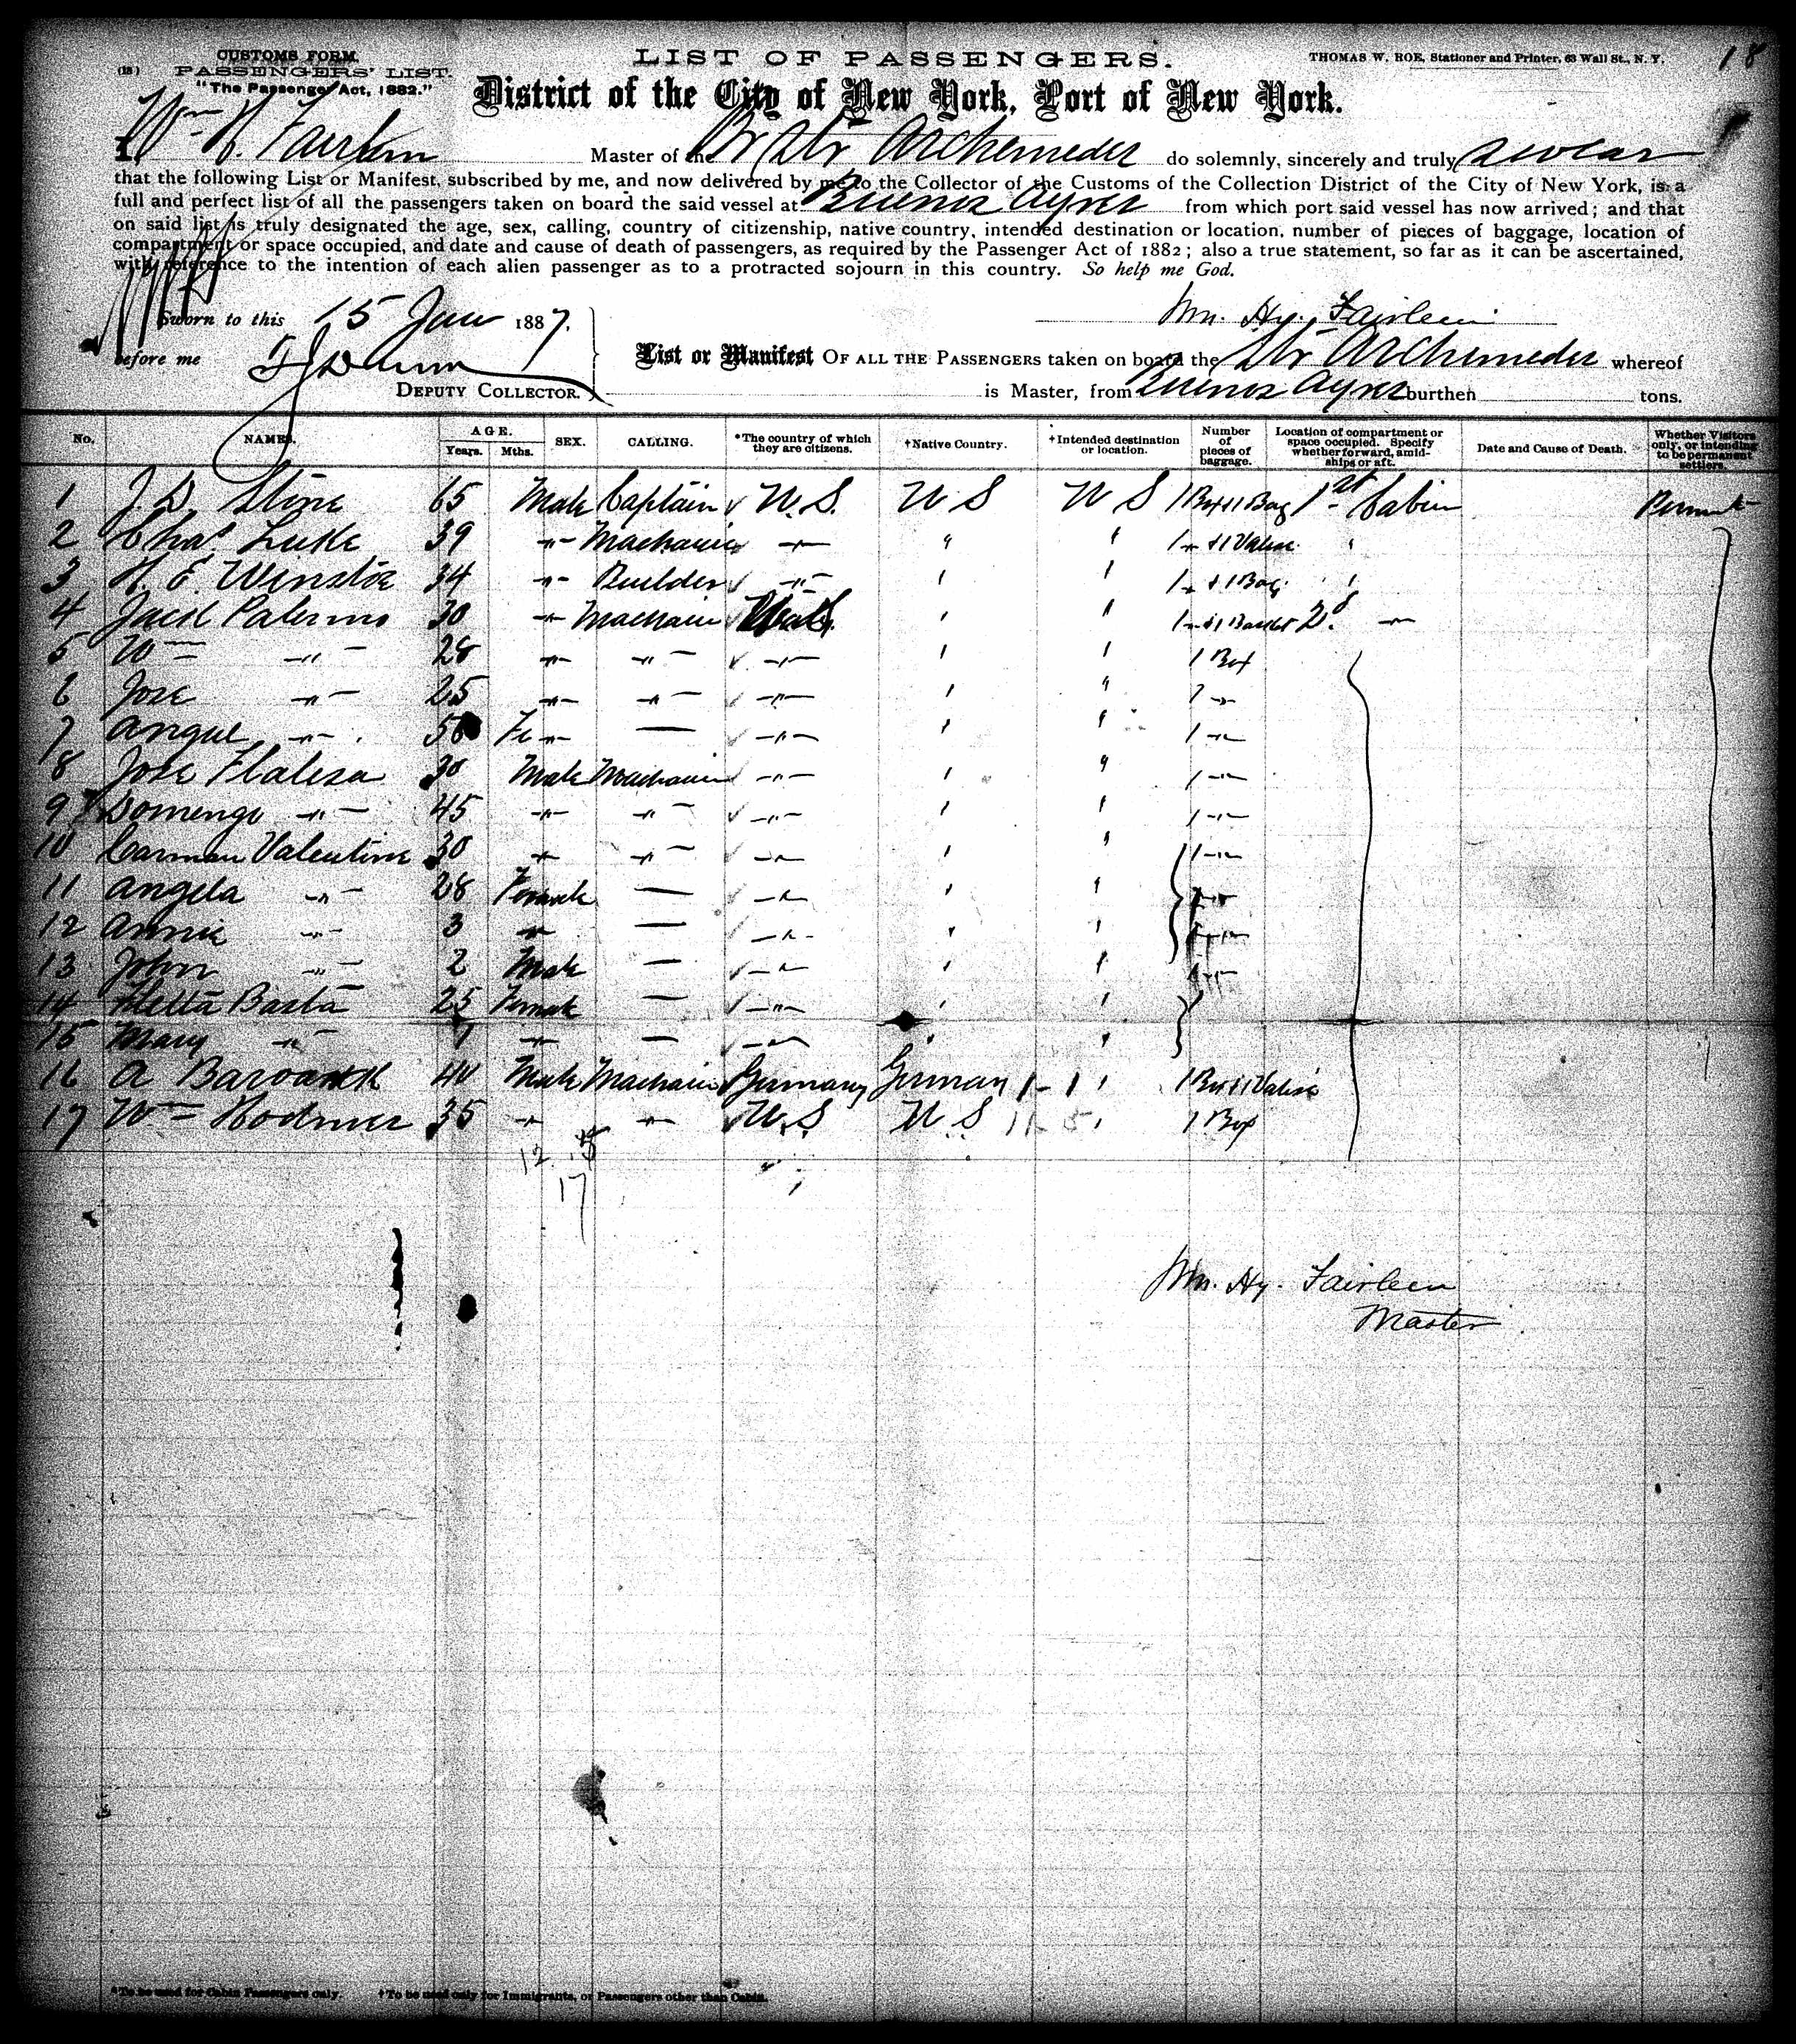 18
CUSTOMS FORM.
LIST OF PASSENGERS.
THOMAS W. ROE, Stationer and Printer, 63 Wall St., N. Y.
(18) PASSENGERS' LIST.
"The Passenger Act, 1882."
District of the City of New York, Port of New York.
I, Wm H. Fairlem Master of the Br Str Archemedes do solemnly, sincerely and truly swear
that the following List or Manifest, subscribed by me, and now delivered by me to the Collector of the Customs of the Collection District of the City of New York, is a
full and perfect list of all the passengers taken on board the said vessel at Buenos Ayres from which port said vessel has now arrived; and that
on said list is truly designated the age, sex, calling, country of citizenship, native country, intended destination or location, number of pieces of baggage, location of
compartment or space occupied, and date and cause of death of passengers, as required by the Passenger Act of 1882; also a true statement, so far as it can be ascertained,
with reference to the intention of each alien passenger as to a protracted sojourn in this country. So help me God.
Sworn to this 15 Jan 1887.
Wm. Hy. Fairleem
before me
List or Manifest OF ALL THE PASSENGERS taken on board the Str Archemedes whereof
DEPUTY COLLECTOR.
is Master, from Buenos Ayres burthen tons.
No. NAMES. AGE. Years. Mths. SEX. CALLING. *The country of which they are citizens. †Native Country. †Intended destination or location. Number of pieces of baggage. Location of compartment or space occupied. Specify whether forward, amidships or aft. Date and Cause of Death. Whether Visitors only, or intending to be permanent settlers.
1 J. D. Stone 65 Male Captain U.S. U S U S 1 Box & 1 Bag 1st Cabin
2 Chas. Luke 39 " Machanic " " " 1 " & 1 Valise "
3 H. E. Winston 34 " Builder " " " 1 " & 1 Bag "
4 Jack Palermo 30 " Machanic U.S. " " 1 " & 1 Basket 2d "
5 Wm " 28 " " " " " 1 Box
6 Jose " 25 " " " " " 1 "
7 Angue " 50 Fe " — " " " 1 "
8 Jose Flalesa 30 Male Machanic " " " 1 "
9 Domengo " 45 " " " " " 1 "
10 Carman Valentine 30 " " " " " 1 "
11 Angela " 28 Female — " " "
12 Annie " 3 " — " " "
13 John " 2 Male — " " "
14 Basta 25 Female — " " "
15 Mary " " — " " "
16 A 40 Male Machanic Germany German " 1 Box & 1 Valise
17 Wm Hodmer 35 " " U S U S " 1 Box
12 5
17
Wm. Hy. Fairleem
Master
*To be used for Cabin Passengers only. †To be used only for Immigrants, or Passengers other than Cabin.